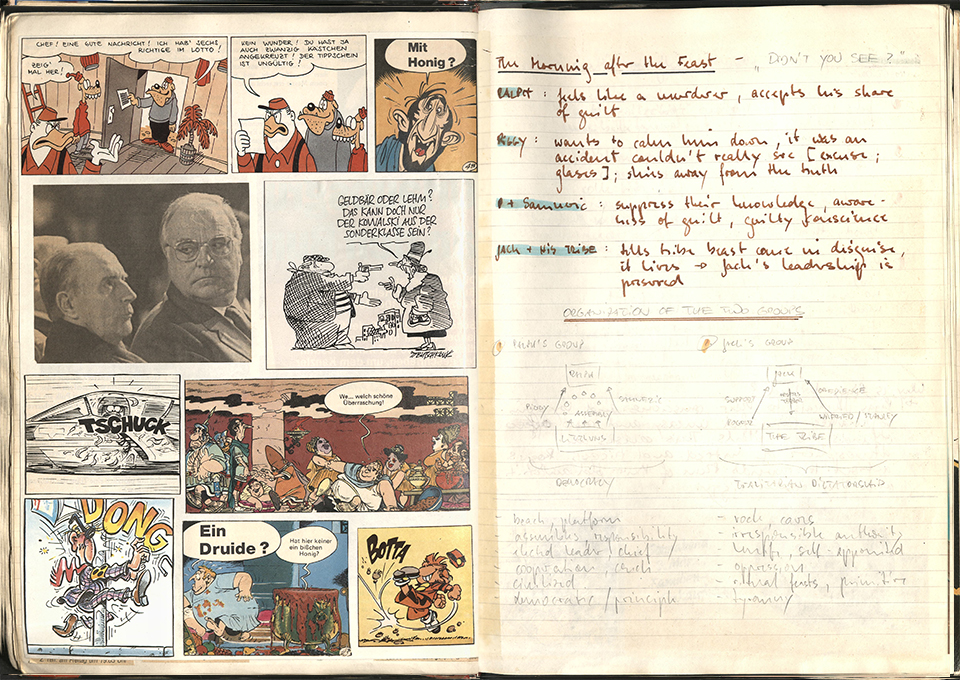 CHEF! EINE GUTE NACHRICHT! ICH HAB' SECHS
RICHTIGE IM LOTTO!
ZEIG'
MAL HER!
KEIN WUNDER! DU HAST JA
AUCH ZWANZIG KÄSTCHEN
ANGEKREUZT! DER TIPPSCHEIN
IST UNGÜLTIG!
Mit
Honig?
GELDBÄR ODER LEHM?
DAS KANN DOCH NUR
DER KOWALSKI AUS DER
SONDERKLASSE SEIN?
TSCHUCK
We... welch schöne
Überraschung!
DONG
Ein
Druide?
Hat hier keiner
ein bißchen
Honig?
BOTTA
The Morning after the Feast - "DIDN'T YOU SEE?"
RALPH: feels like a murderer, accepts his share
of guilt
PIGGY: wants to calm him down, it was an
accident couldn't really see [excuse;
glasses]; shies away from the truth
P + Samneric: suppress their knowledge, aware-
ness of guilt, guilty conscience
JACK + HIS TRIBE: tells tribe beast came in disguise,
it lives → Jack's leadership is
preserved
ORGANIZATION OF THE TWO GROUPS
RALPH'S GROUP
Jack's GROUP
RALPH
JACK
OBEDIENCE
PIGGY
ASSEMBLY
SUPPORT
ROGER
LITTLUNS
THE TRIBE
DEMOCRACY
TOTALITARIAN DICTATORSHIP
- beach, platform
- rock, caves
- assemblies, responsibility
- irresponsible authority
- elected leader, chief
- self-appointed
- cooperation, conch
- oppression
- civilized
- feasts, primitive
- democratic principle
- tyranny